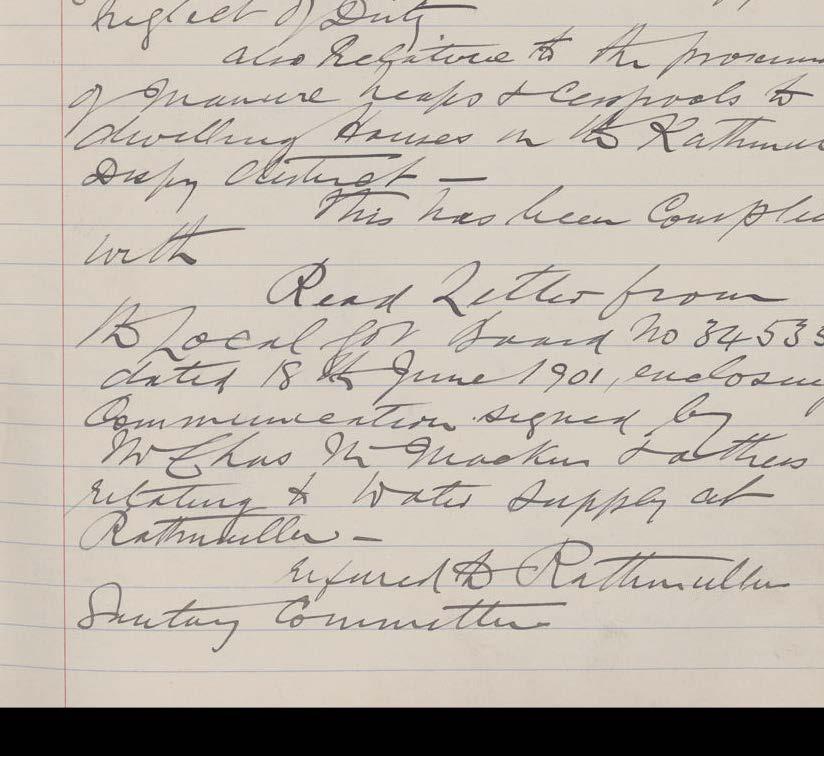 neglect of Duty
also Relative to the proxim
of Manure heaps & Cesspools to
dwelling Houses in the Rathmul
Dispy District —
This has been Complie
with
Read Letter from
the Local Gov Board No 34535
dated 18th June 1901, enclosing
Communication signed by
Mr Chas & others
relating to Water supply at
Rathmullen —
referred to Rathmullen
Sanitary Committee